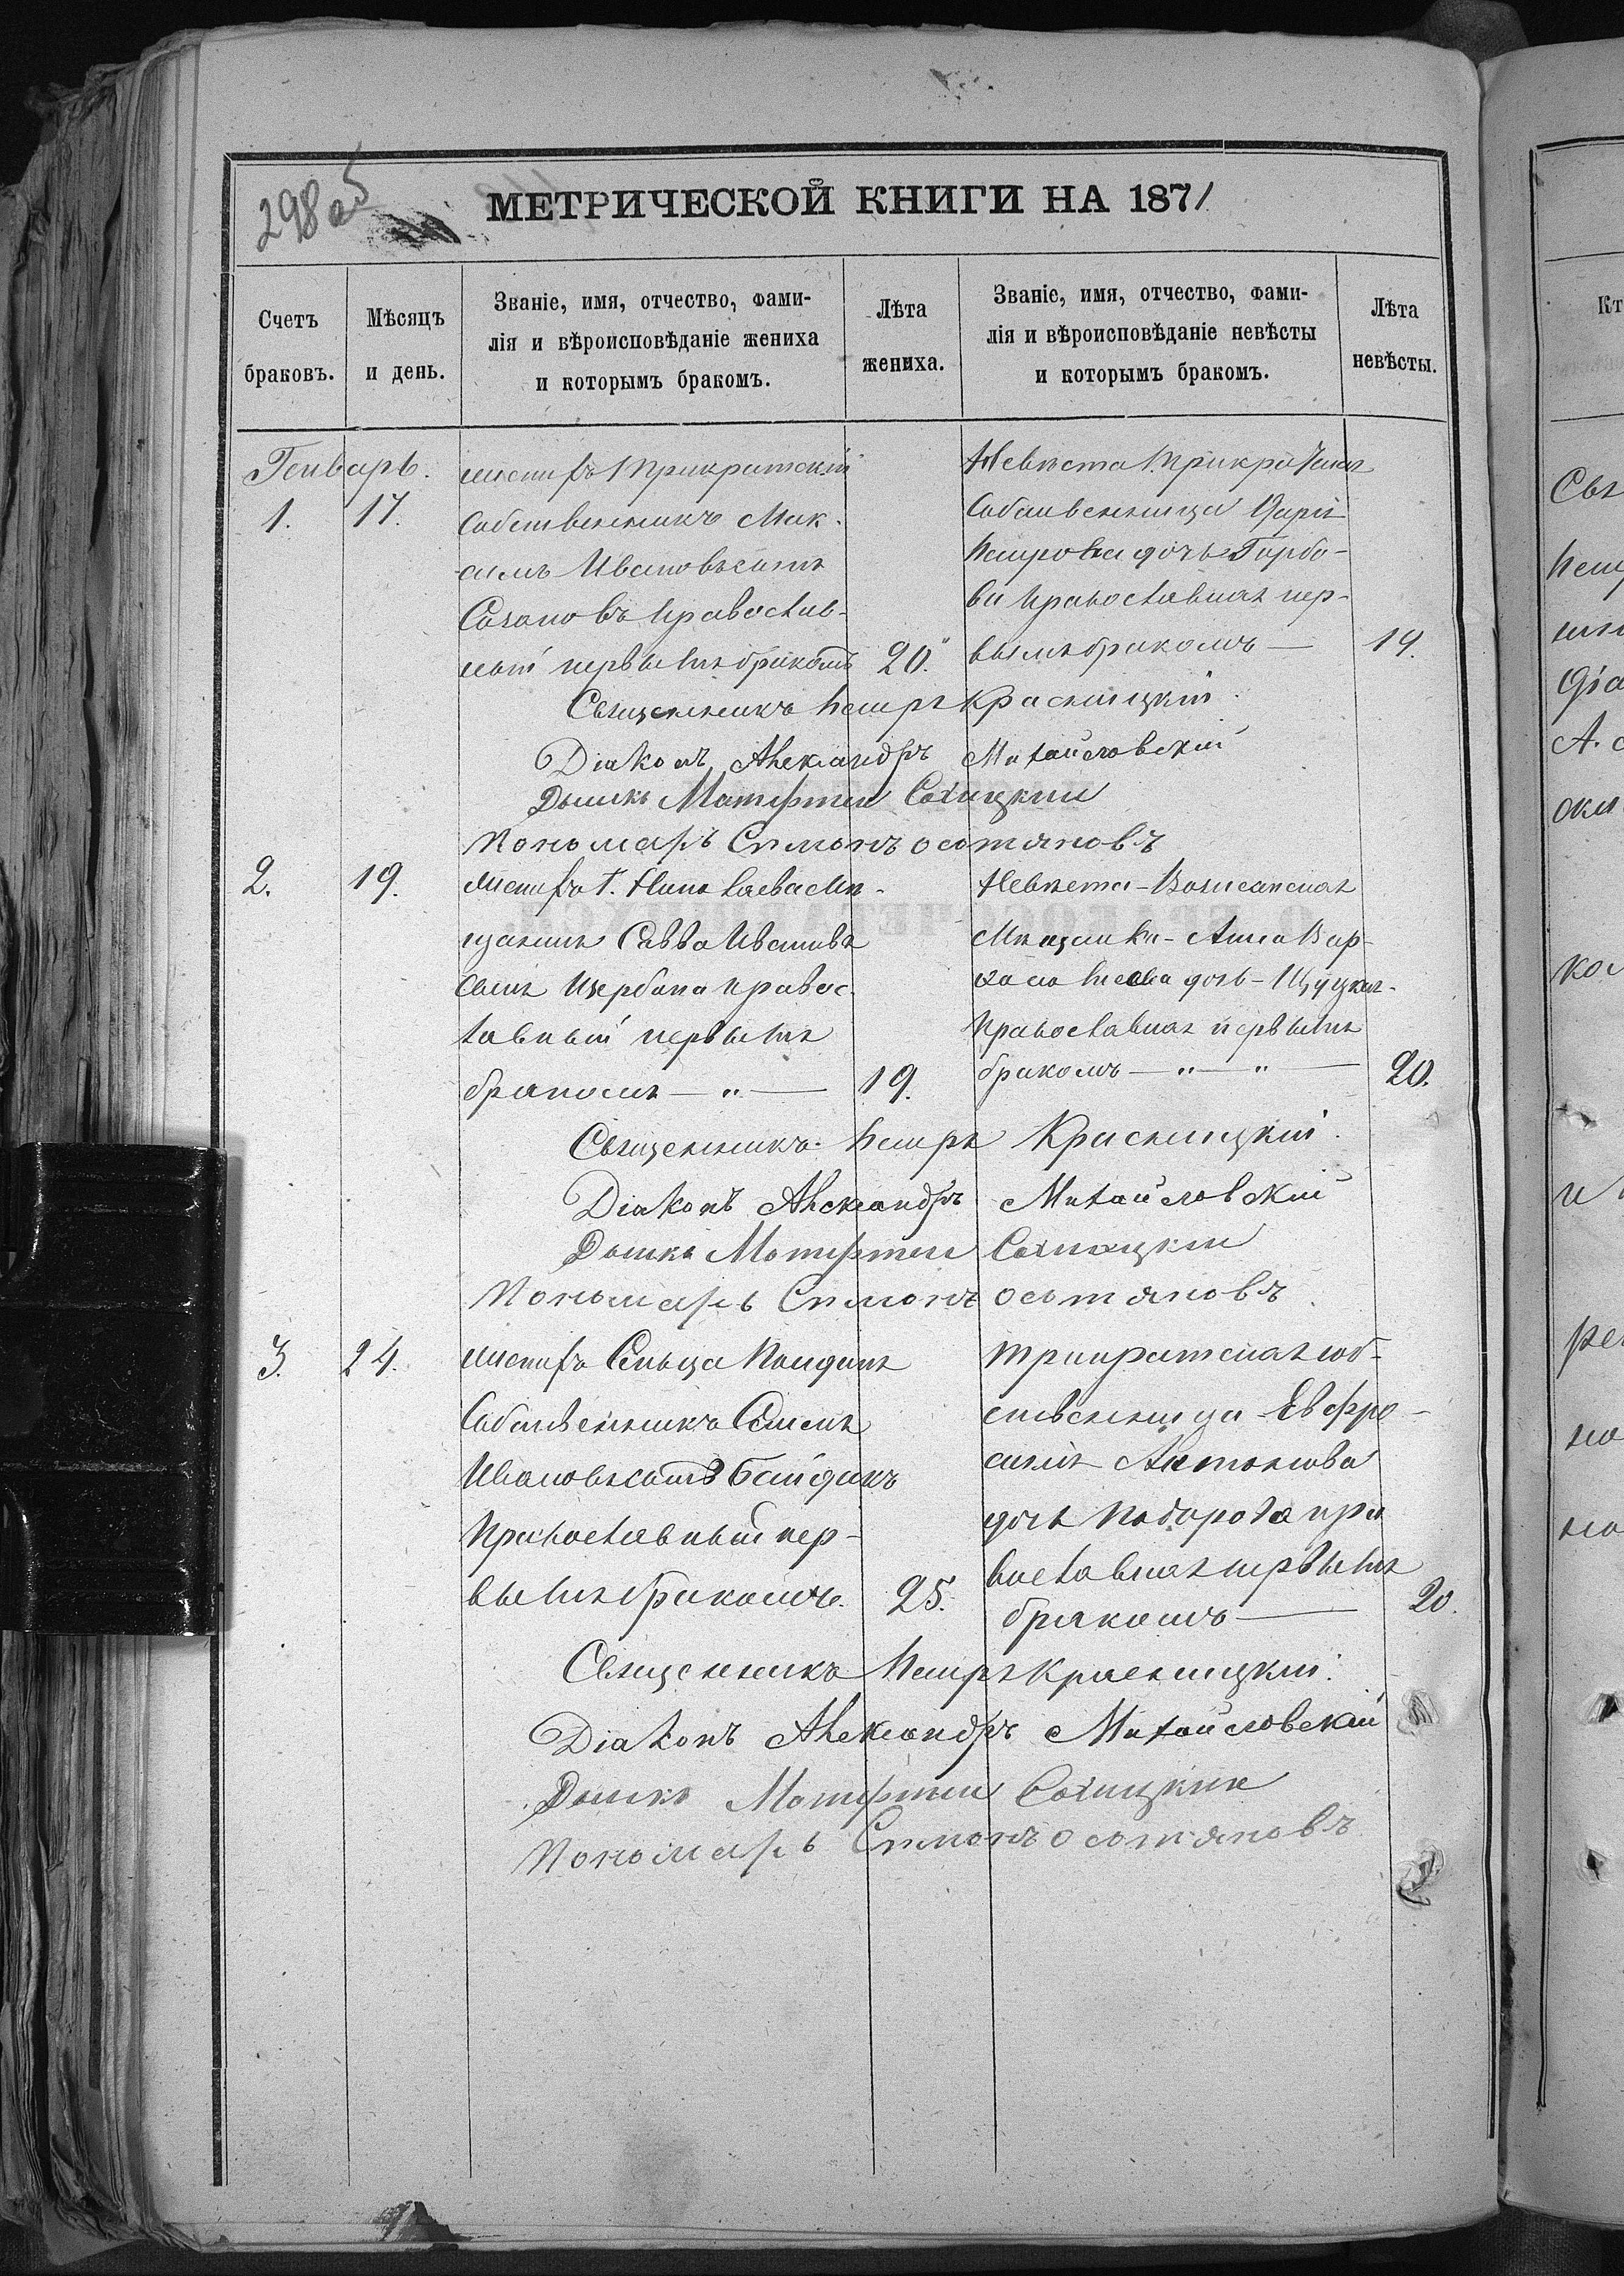 298 об
МЕТРИЧЕСКОЙ КНИГИ НА 1871
Счетъ браковъ.
Мѣсяцъ и день.
Званіе, имя, отчество, фами-
лія и вѣроисповѣданіе жениха
и которымъ бракомъ.
Лѣта жениха.
Званіе, имя, отчество, фами-
лія и вѣроисповѣданіе невѣсты
и которымъ бракомъ.
Лѣта невѣсты.
Генварь.
1. 17.
женихъ Трикратскій
собственникъ Мак-
симъ Ивановъ сынъ
Сазановъ Православ-
ный первымъ бракомъ 20.
Невѣста Трикратская
собственница Дарія
Петрова дочь Горбо-
ва Православная пер-
вымъ бракомъ — 19.
Священникъ Петръ Красницкій
Діаконъ Александръ Михайловскій
Дьячекъ
Пономарь Симонъ
2. 19.
женихъ г. Николаева Мѣ-
щанинъ Савва Ивановъ
сынъ Щербина Правос-
лавный первымъ
бракомъ — " — 19.
Невѣста — Вознесенская
Мѣщанка — Анна Вар-
дочь — Щуцкая
Православная первымъ
бракомъ — " — " — 20.
Священникъ Петръ Красницкій.
Діаконъ Александръ Михайловскій
Дьячекъ
Пономарь Симонъ
3. 24.
женихъ Сельца
Собственникъ Семенъ
Ивановъ сынъ Байдакъ
Православный пер-
вымъ бракомъ. 25.
Трикратская соб-
ственница — Евфро-
синія Антонова
дочь Пра-
вославная первымъ
бракомъ — 20.
Священникъ Петръ Красницкій.
Діаконъ Александръ Михайловскій
Дьячекъ
Пономарь Симонъ